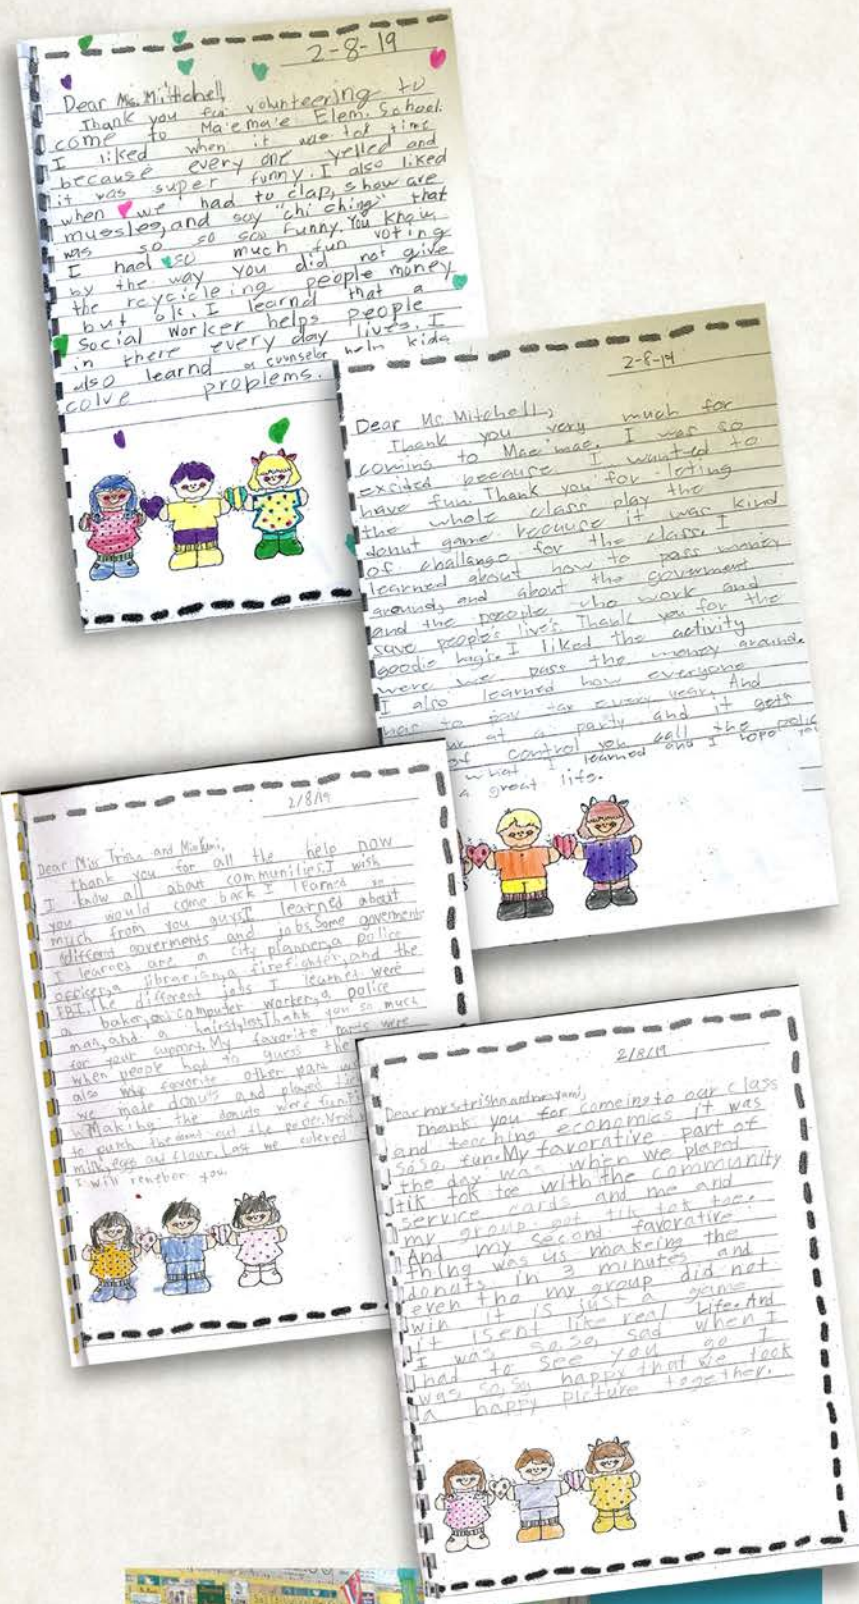 2-8-19
Dear Ms. Mitchell,
Thank you for volunteering to
come to Ma'ema'e Elem. School.
I liked when it was tok time
because every one yelled and
it was super funny. I also liked
when we had to clap, show are
mussles, and say "chi ching" that
was so so soo funny. You know
I had so much fun voting
by the way you did not give
the recycleing people money
but ok. I learnd that a
social worker helps people
in there every day lives. I
also learnd a counselor help kids
colve problems.
2-8-19
Dear Ms. Mitchell,
Thank you very much for
coming to Mae'mae. I was so
excited because I wanted to
have fun. Thank you for leting
the whole class play the
donut game because it was kind
of challange for the class. I
learned about how to pass money
around, and about the goverment
and the people who work and
save people's live's. Thank you for the
goodie bag's. I liked the activity
were we pass the money around.
I also learned how everyone
has to pay tax every year. And
at a party and it gets
of control you call the police
what I learned and I hope you
a great life.
2/8/19
Dear Miss Trisha and
thank you for all the help now
I know all about communities. I wish
you would come back I learned so
much from you guys. I learned about
different goverments and jobs. Some goverments
I learned are a city planner, a police
officer, a librarian, a firefighter, and the
FBI. The different jobs I learnet were
a baker, computer worker, a police
man, and a hairstylest. Thank you so much
for your support. My favorite parts were
when people had to guess the
also my favorite other part
we made donuts and played
Making the donuts were fun
to punch the donut out the paper. Next
milk, eggs and flour. Last we colored
I will remeber you.
2/8/19
Dear mrs. trisha and
Thank you for comeing to our class
and teaching economics it was
so so, fun. My favorative part of
the day was when we played
tik tok toe with the community
service cards and me and
my group got tik tok toe.
And my second favorative
thing was us makeing the
donuts in 3 minutes and
even tho my group did not
win it is just a game
it isent like real life. And
I was so, so, sad when I
had to see you go I
was so, so happy that we took
a happy picture together.